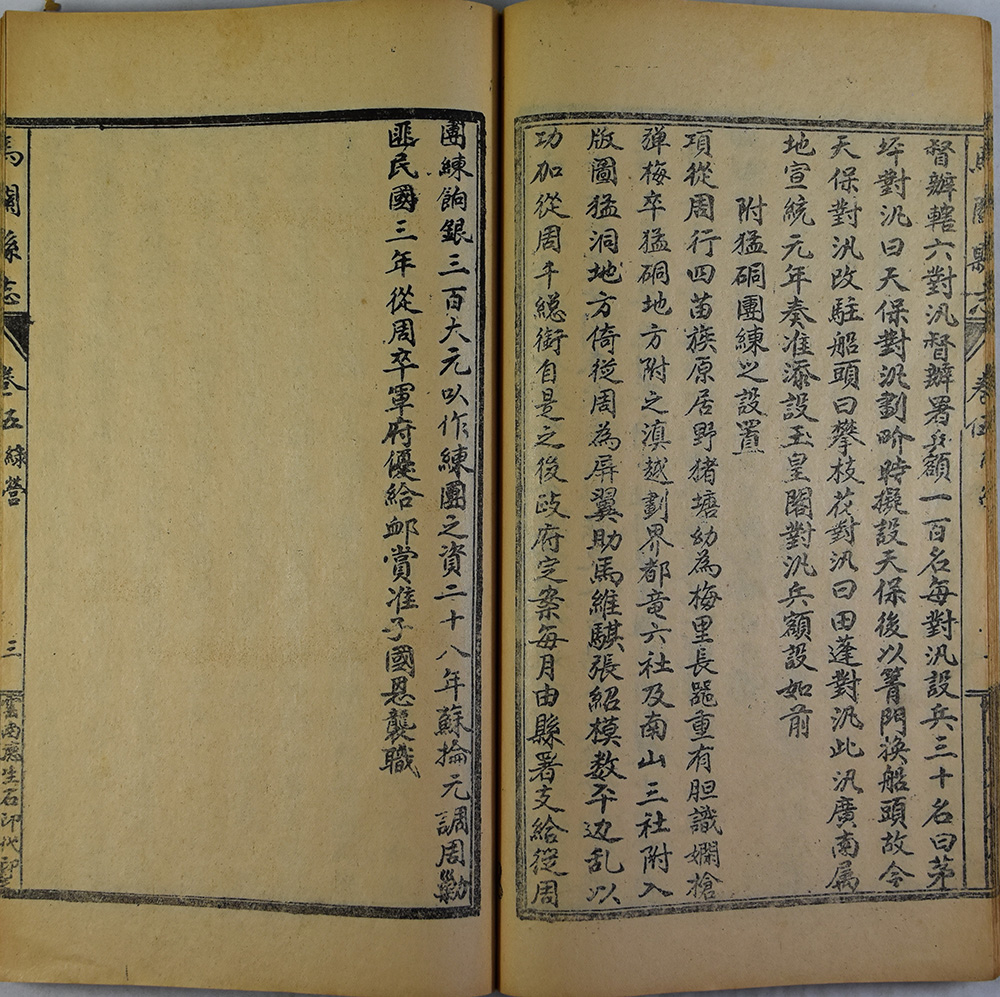 督辦轄六對汛督辦署兵額一百名每對汛設兵三十名曰茅
坪對汛曰天保對汛劃界時擬設天保後以箐門换船頭故今
天保對汛改駐船頭曰攀枝花對汛曰田蓬對汛此汛廣南属
地宣統元年奏准添設玉皇閣對汛兵額設如前
附猛硐團練之設置
項從周行四苗族原居野猪塘幼為梅里長噐重有胆識嫻槍
彈梅卒猛硐地方附之滇越劃界都竜六社及南山三社附入
版圖猛洞地方倚從周為屏翼助馬維騏張紹模数平边乱以
功加從周千縂銜自是之後政府定案每月由縣署支給從周
團練餉銀三百大元以作練團之資二十八年蘇掄元調周勦
匪民國三年從周卒軍府優給卹賞准子國恩襲職
馬關縣志
卷五
綠營
三
雲南慶生石印代印